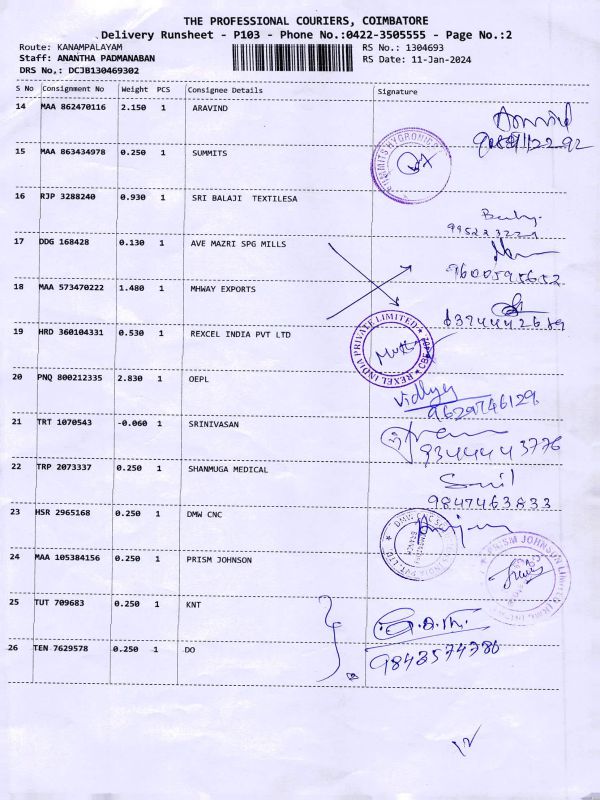 THE PROFESSIONAL COURIERS, COIMBATORE
Delivery Runsheet - P103 - Phone No.:0422-3505555 - Page No.:2
Route: KANAMPALAYAM RS No.: 1304693
Staff: ANANTHA PADMANABAN RS Date: 11-Jan-2024
DRS No,: DCJB130469302
S No Consignment No Weight PCS Consignee Details Signature
14 MAA 862470116 2.150 1 ARAVIND
15 MAA 863434978 0.250 1 SUMMITS
16 RJP 3288240 0.930 1 SRI BALAJI TEXTILESA
17 DDG 168428 0.130 1 AVE MAZRI SPG MILLS
9600595652
18 MAA 573470222 1.480 1 MHWAY EXPORTS
6374442689
19 HRD 360104331 0.530 1 REXCEL INDIA PVT LTD
REXEL INDIA PRIVATE LIMITED
20 PNQ 800212335 2.830 1 OEPL
Vidhya
9629746129
21 TRT 1070543 -0.060 1 SRINIVASAN
9344443776
22 TRP 2073337 0.250 1 SHANMUGA MEDICAL
Sunil
9847463833
23 HSR 2965168 0.250 1 DMW CNC
24 MAA 105384156 0.250 1 PRISM JOHNSON
PRISM JOHNSON LIMITED
25 TUT 709683 0.250 1 KNT
26 TEN 7629578 0.250 1 DO
9843574786